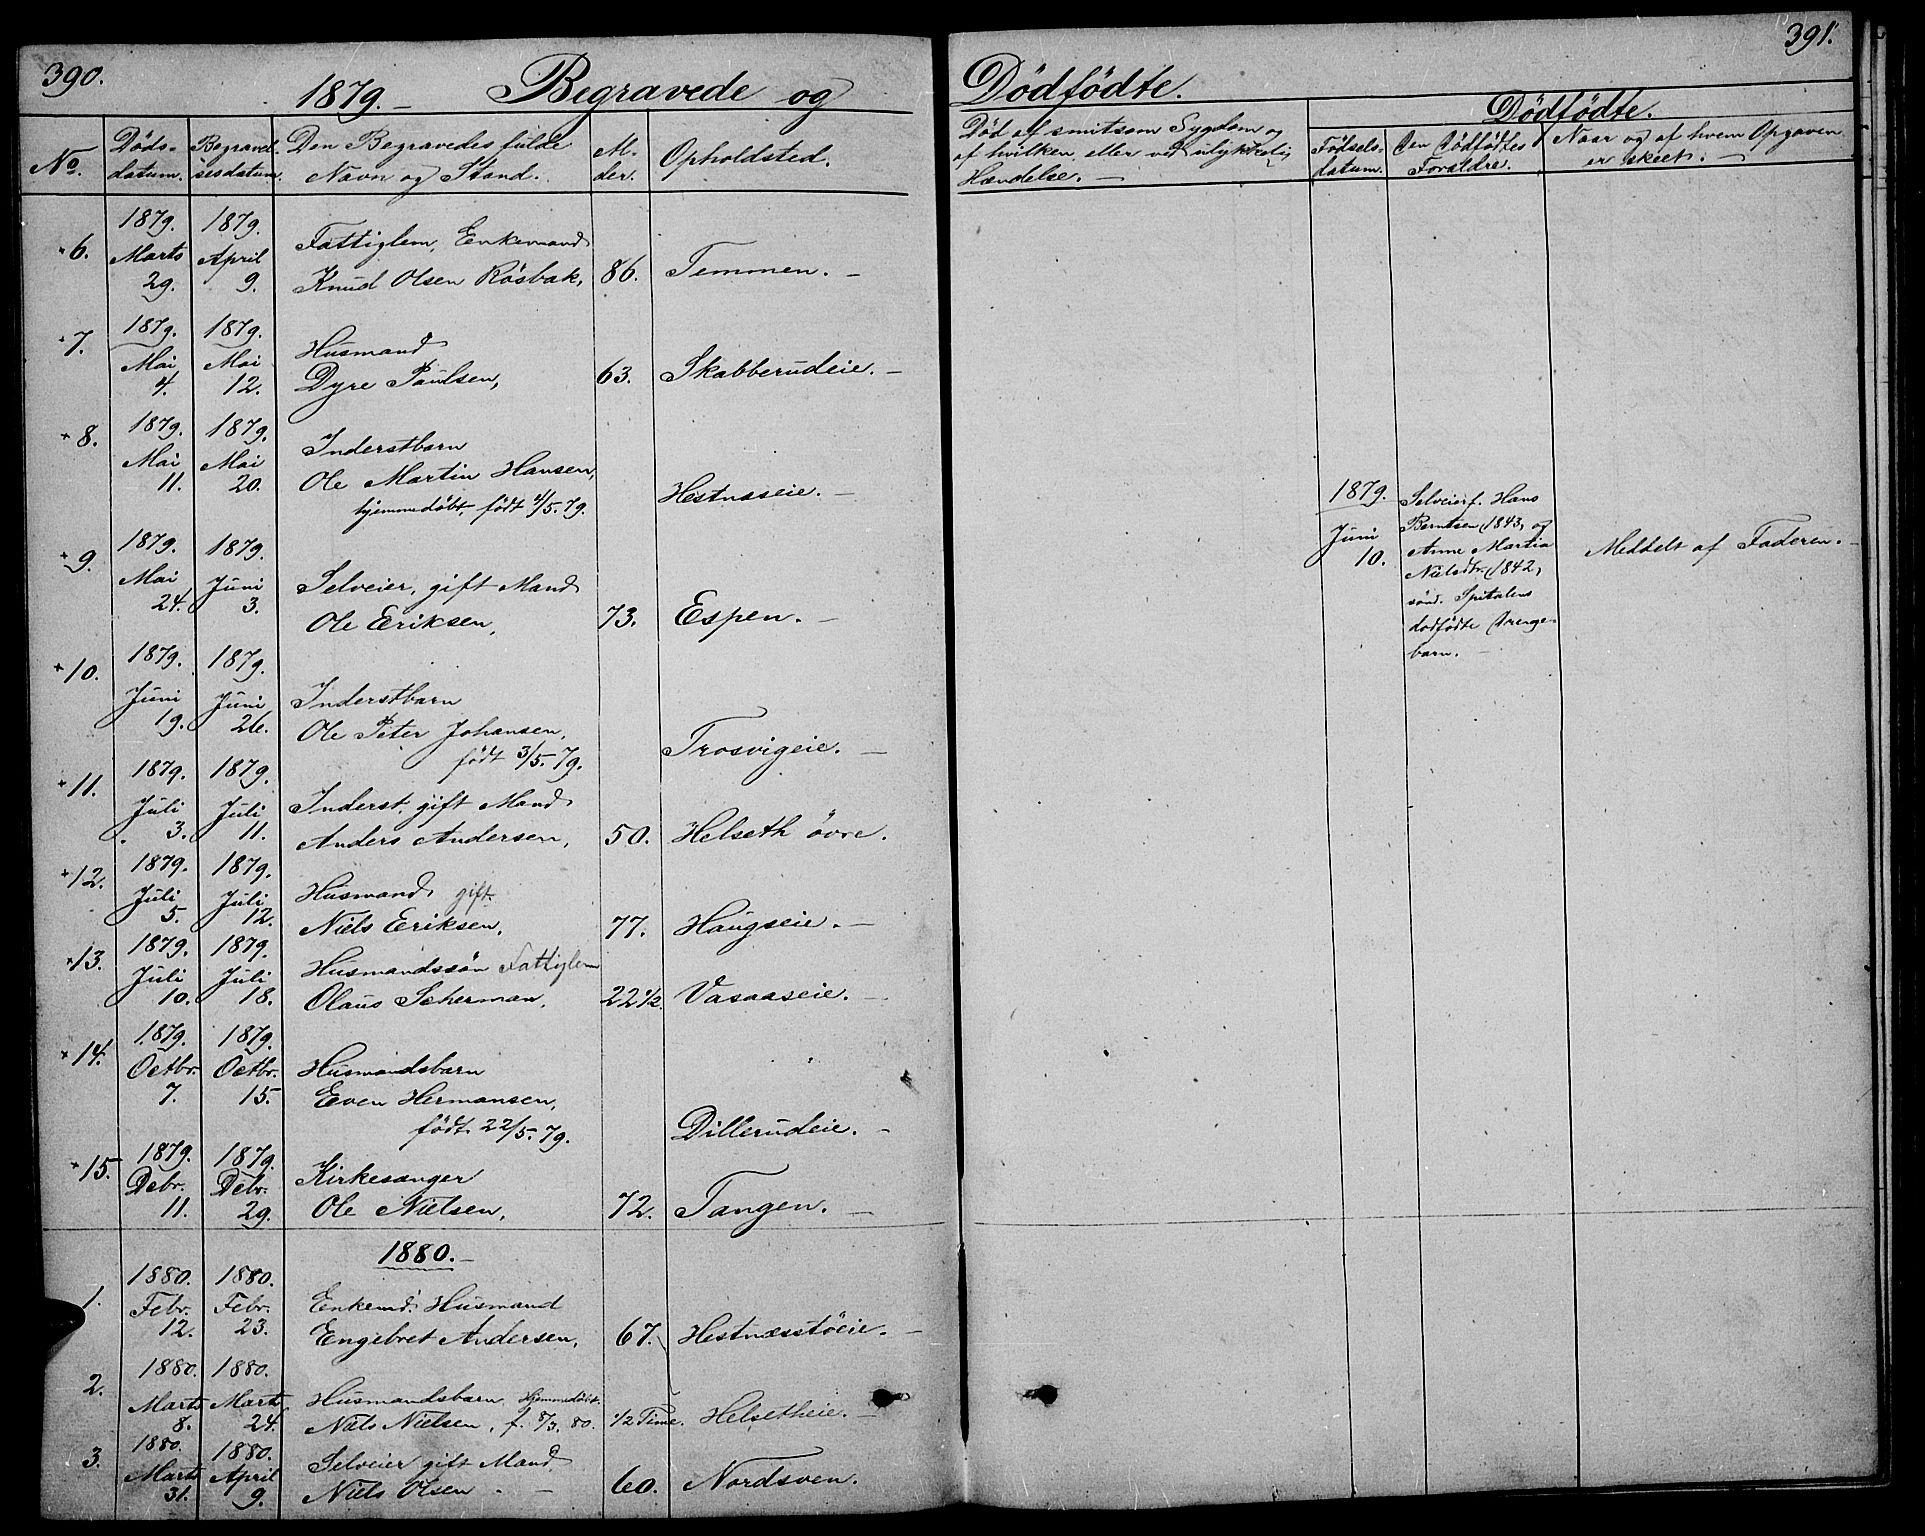 390.
1879. – Begravede og
No.
Døds-
datum.
Begravel-
sesdatum.
Den Begravedes fulde
Navn og Stand.
Al-
der.
Opholdsted.
6.
1879.
Marts
29.
1879.
April
9.
Fattiglem, Enkemand
Knud Olsen Røsbak,
86.
Temmen. –
7.
1879.
Mai
4.
1879.
Mai
12.
Husmand
Dyre Paulsen,
63.
Skabberudeie. –
8.
1879.
Mai
11.
1879.
Mai
20.
Inderstbarn
Ole Martin Hansen,
hjemmedøbt, født 4/5.79.
Hestnæseie. –
9.
1879.
Mai
24.
1879.
Juni
3.
Selveier, gift Mand
Ole Eriksen,
73.
Espen. –
10.
1879.
Juni
19.
1879.
Juni
26.
Inderstbarn
Ole Peter Johansen,
født 3/5.79.
Trosvigeie. –
11.
1879.
Juli
3.
1879.
Juli
11.
Inderst, gift Mand
Anders Andersen,
50.
Helseth øvre.
12.
1879.
Juli
5.
1879.
Juli
12.
Husmand gift
Niels Eriksen,
77.
Haugseie. –
13.
1879.
Juli
10.
1879.
Juli
18.
Husmandssøn Fattiglem
Olaus Scherman,
22 1/2.
Vasaaseie. –
14.
1879.
Octbr.
7.
1879.
Octbr.
15.
Husmandsbarn
Even Hermansen,
født 22/5.79.
Dillerudeie. –
15.
1879.
Debr.
11.
1879.
Debr.
29.
Kirkesanger
Ole Nielsen,
72.
Tangen. –
1880. –
1.
1880.
Febr.
12.
1880.
Febr.
23.
Enkemd. Husmand
Engebret Andersen,
67.
Hestnæsstøeie. –
2.
1880.
Marts
8.
1880.
Marts
24.
Husmandsbarn, Hjemmedøbt
Niels Nielsen, f. 8/3.80.
1/2 Time.
Helsetheie. –
3.
1880.
Marts
31.
1880.
April
9.
Selveier gift Mand
Niels Olsen – –
60.
Nordsven.
391.
Dødfødte.
Død af smitsom Sygdom og
af hvilken, eller ved ulykkelig
Hændelse. –
Dødfødte.
Fødsels-
datum.
Den Dødfødtes
Forældre.
Naar og af hvem Opgaven
er skeet. –
1879.
Juni
10.
Selveierf. Hans
Berntsen (1843, og
Anne Martia
Nielsdtr. (1842,
sønd. Spitalens
dødfødte Drenge-
barn. –
Meddelt af Faderen. –